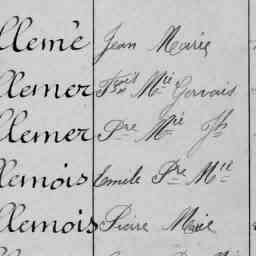 llemè Jean Marie
llemer Fçois Mie Gervais
llemer Pre Mie Jh
llemois Emile Pre Mie
llemois Pierre Marie